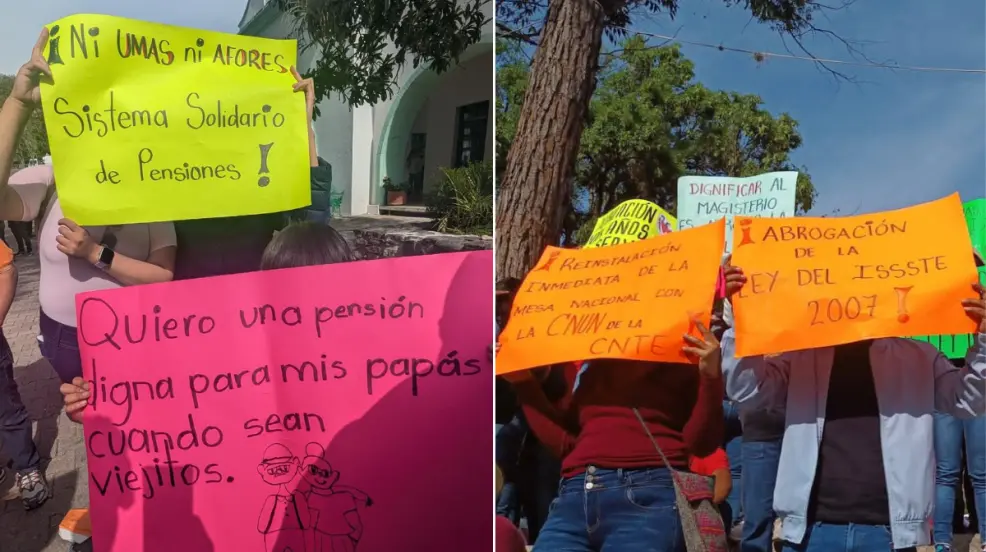 ¡NI UMAS NI AFORES
Sistema Solidario
de Pensiones!
Quiero una pensión
digna para mis papás
cuando sean
viejitos.
AÑOS
DIGNIFICAR AL
MAGISTERIO
¡REINSTALACIÓN
INMEDIATA DE LA
MESA NACIONAL CON
LA CNUN DE LA
CNTE
¡ABROGACIÓN
DE LA
LEY DEL ISSSTE
2007!